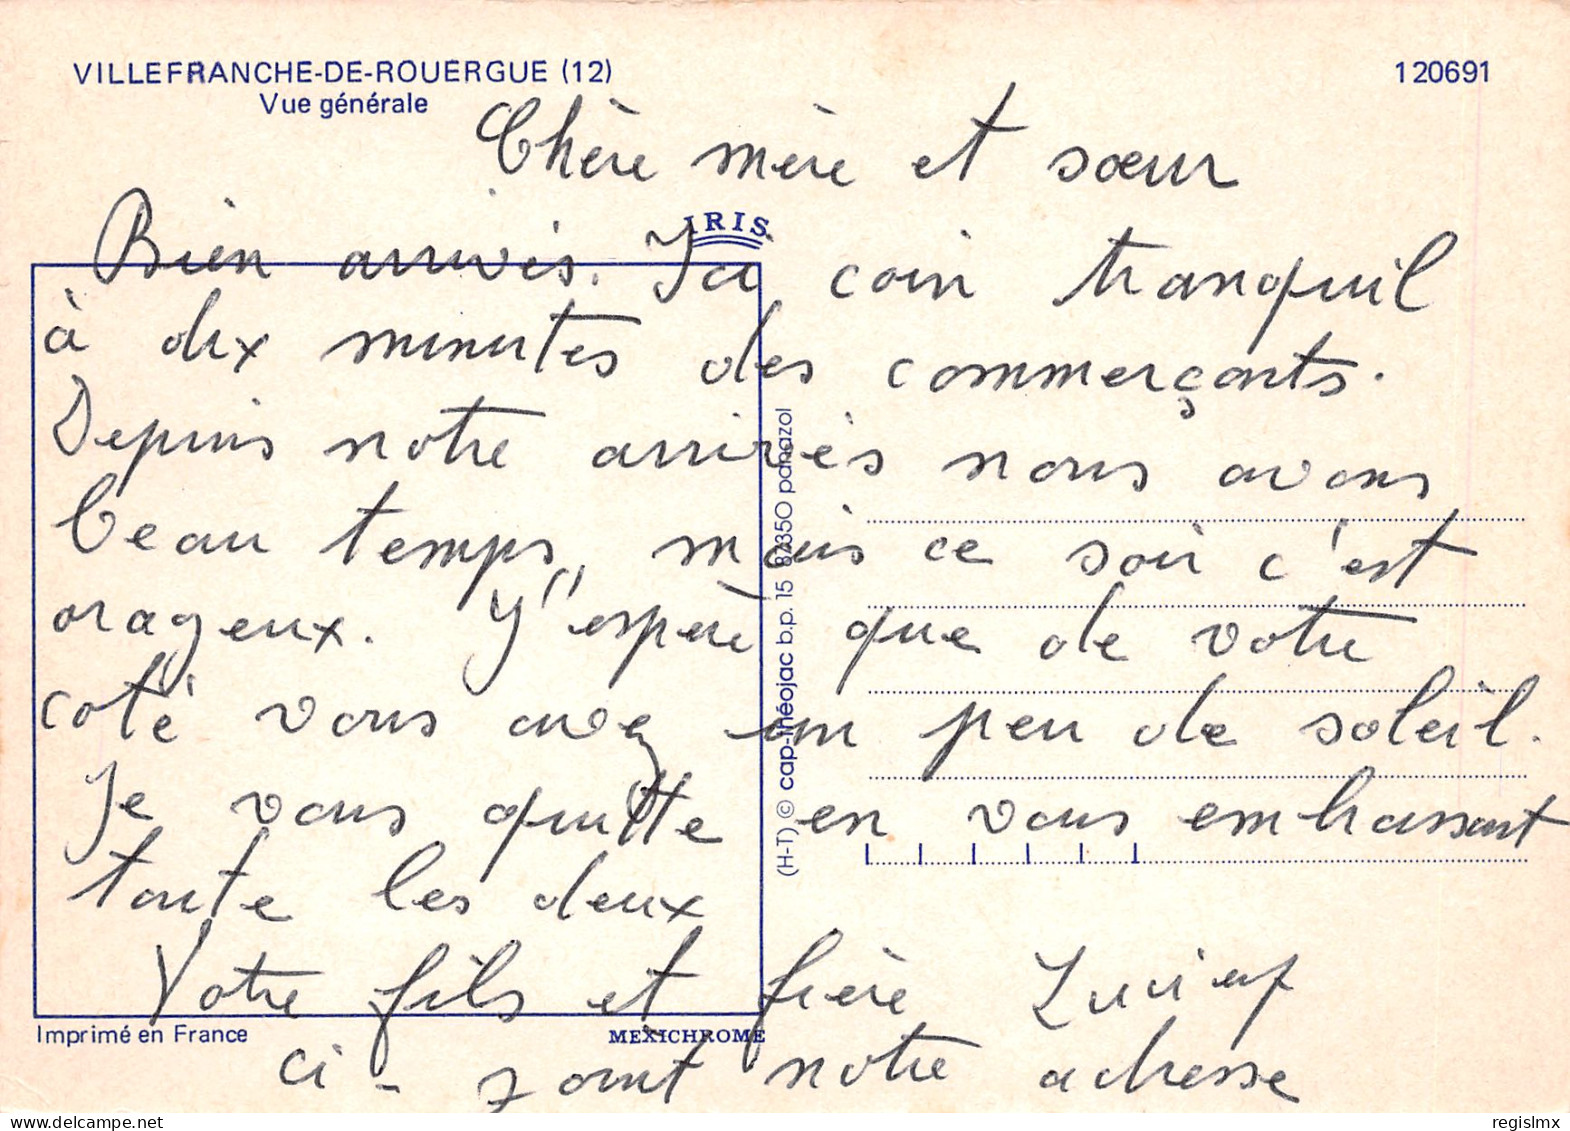 VILLEFRANCHE-DE-ROUERGUE (12)
Vue générale
120691
Chère mère et sœur
IRIS
Bien arrivés. Ici coin tranquil
à dix minutes des commerçants.
Depuis notre arrivés nous avons
beau temps, mais ce soir c'est
orageux. J'espère que de votre
coté vous avez un peu de soleil.
Je vous quitte en vous embrassant
toute les deux
Votre fils et frère
ci-joint notre adresse
(H-T) © cap-théojac b.p. 15 87350 panazol
Imprimé en France
MEXICHROME
regislmx
delcampe.net